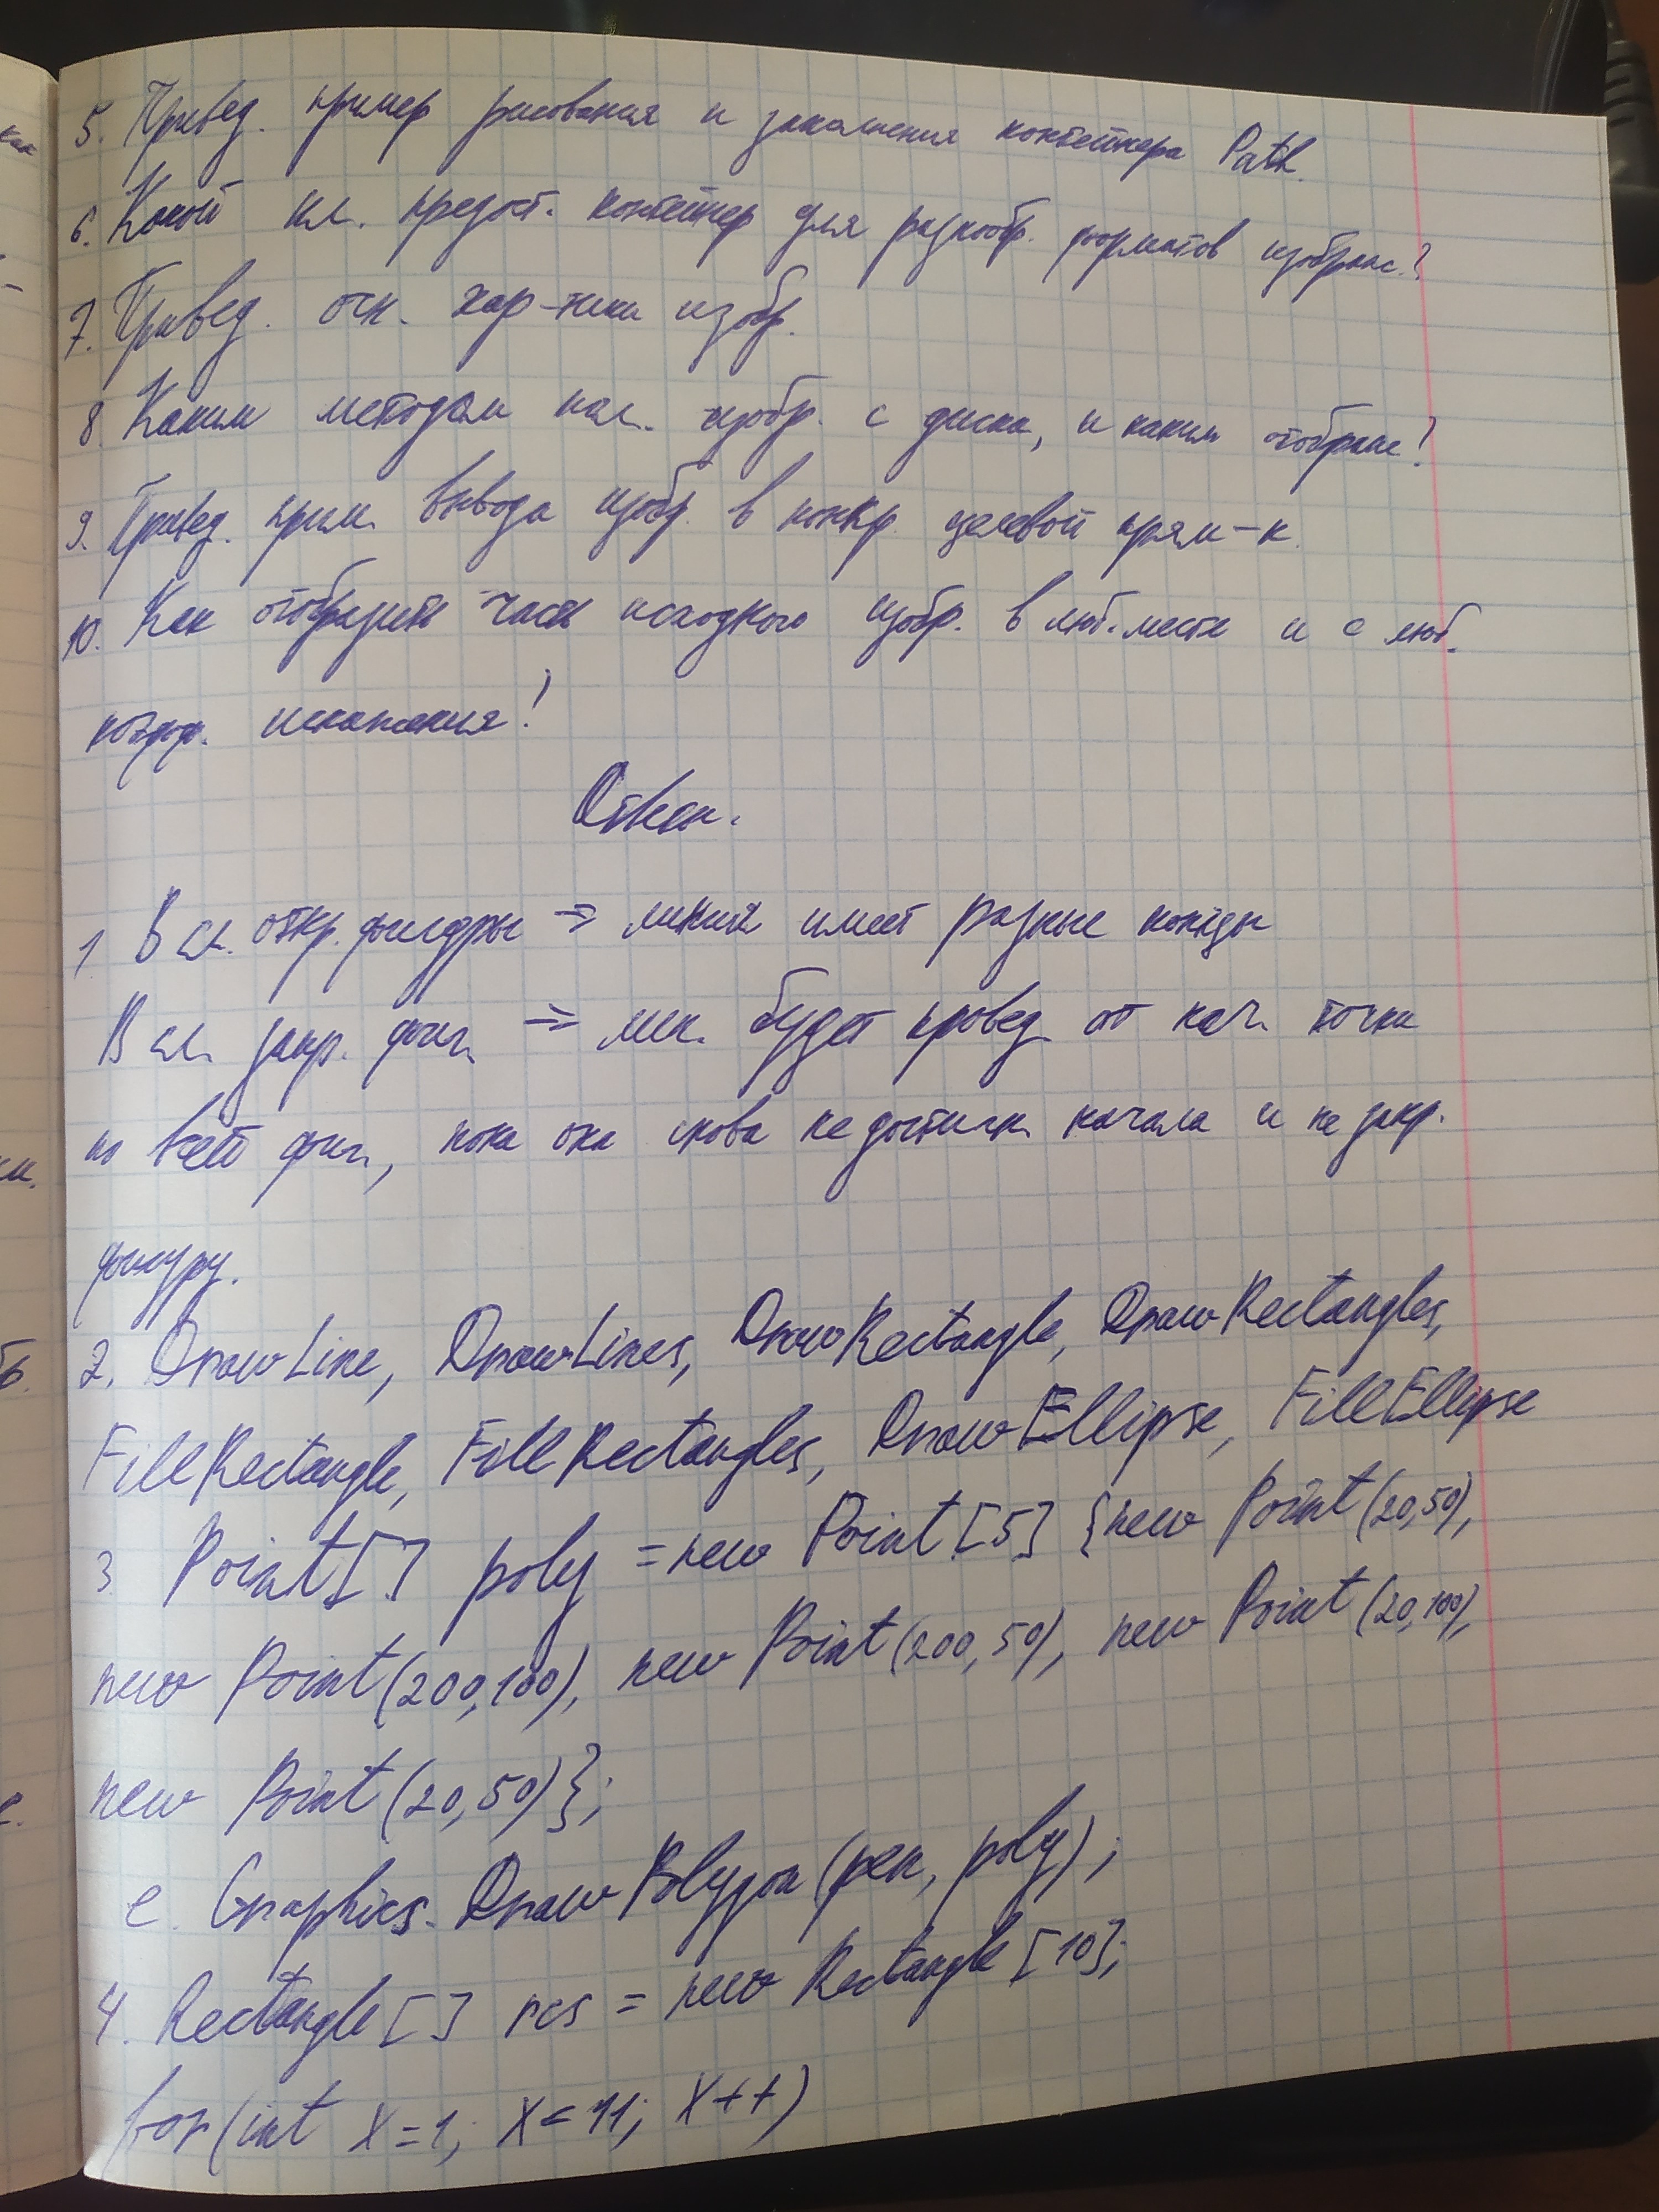 5. Привед. пример рисования и заполнения контейнера Path.
6. Какой кл. предост. контейнер для разнообр. форматов изображ.?
7. Привед. осн. хар-тики изобр.
8. Каким методом изобр. с диска, и каким отображ?
9. Привед. прим. вывода изобр. в конкр. целевой прям-к.
10. Как отобразить часть исходного изобр. в люб. месте и с люб.
коэфф. искажения?
1. В сл. откр. фигуры => линия имеет разные концы
В сл. закр. фиг. => лин. будет провед. от нач. точки
по всей фиг., пока она снова не достигн. начала и не закр.
фигуру.
2. DrawLine, DrawLines, DrawRectangle, DrawRectangles,
FillRectangle, FillRectangles, DrawEllipse, FillEllipse
3. Point[] poly = new Point[5] {new Point(20,50),
new Point(200,100), new Point(200,50), new Point(20,100),
new Point(20,50)};
e. Graphics. DrawPolygon(pen, poly);
4. Rectangle[] rcs = new Rectangle[10];
for(int x=1; x<11; x++)